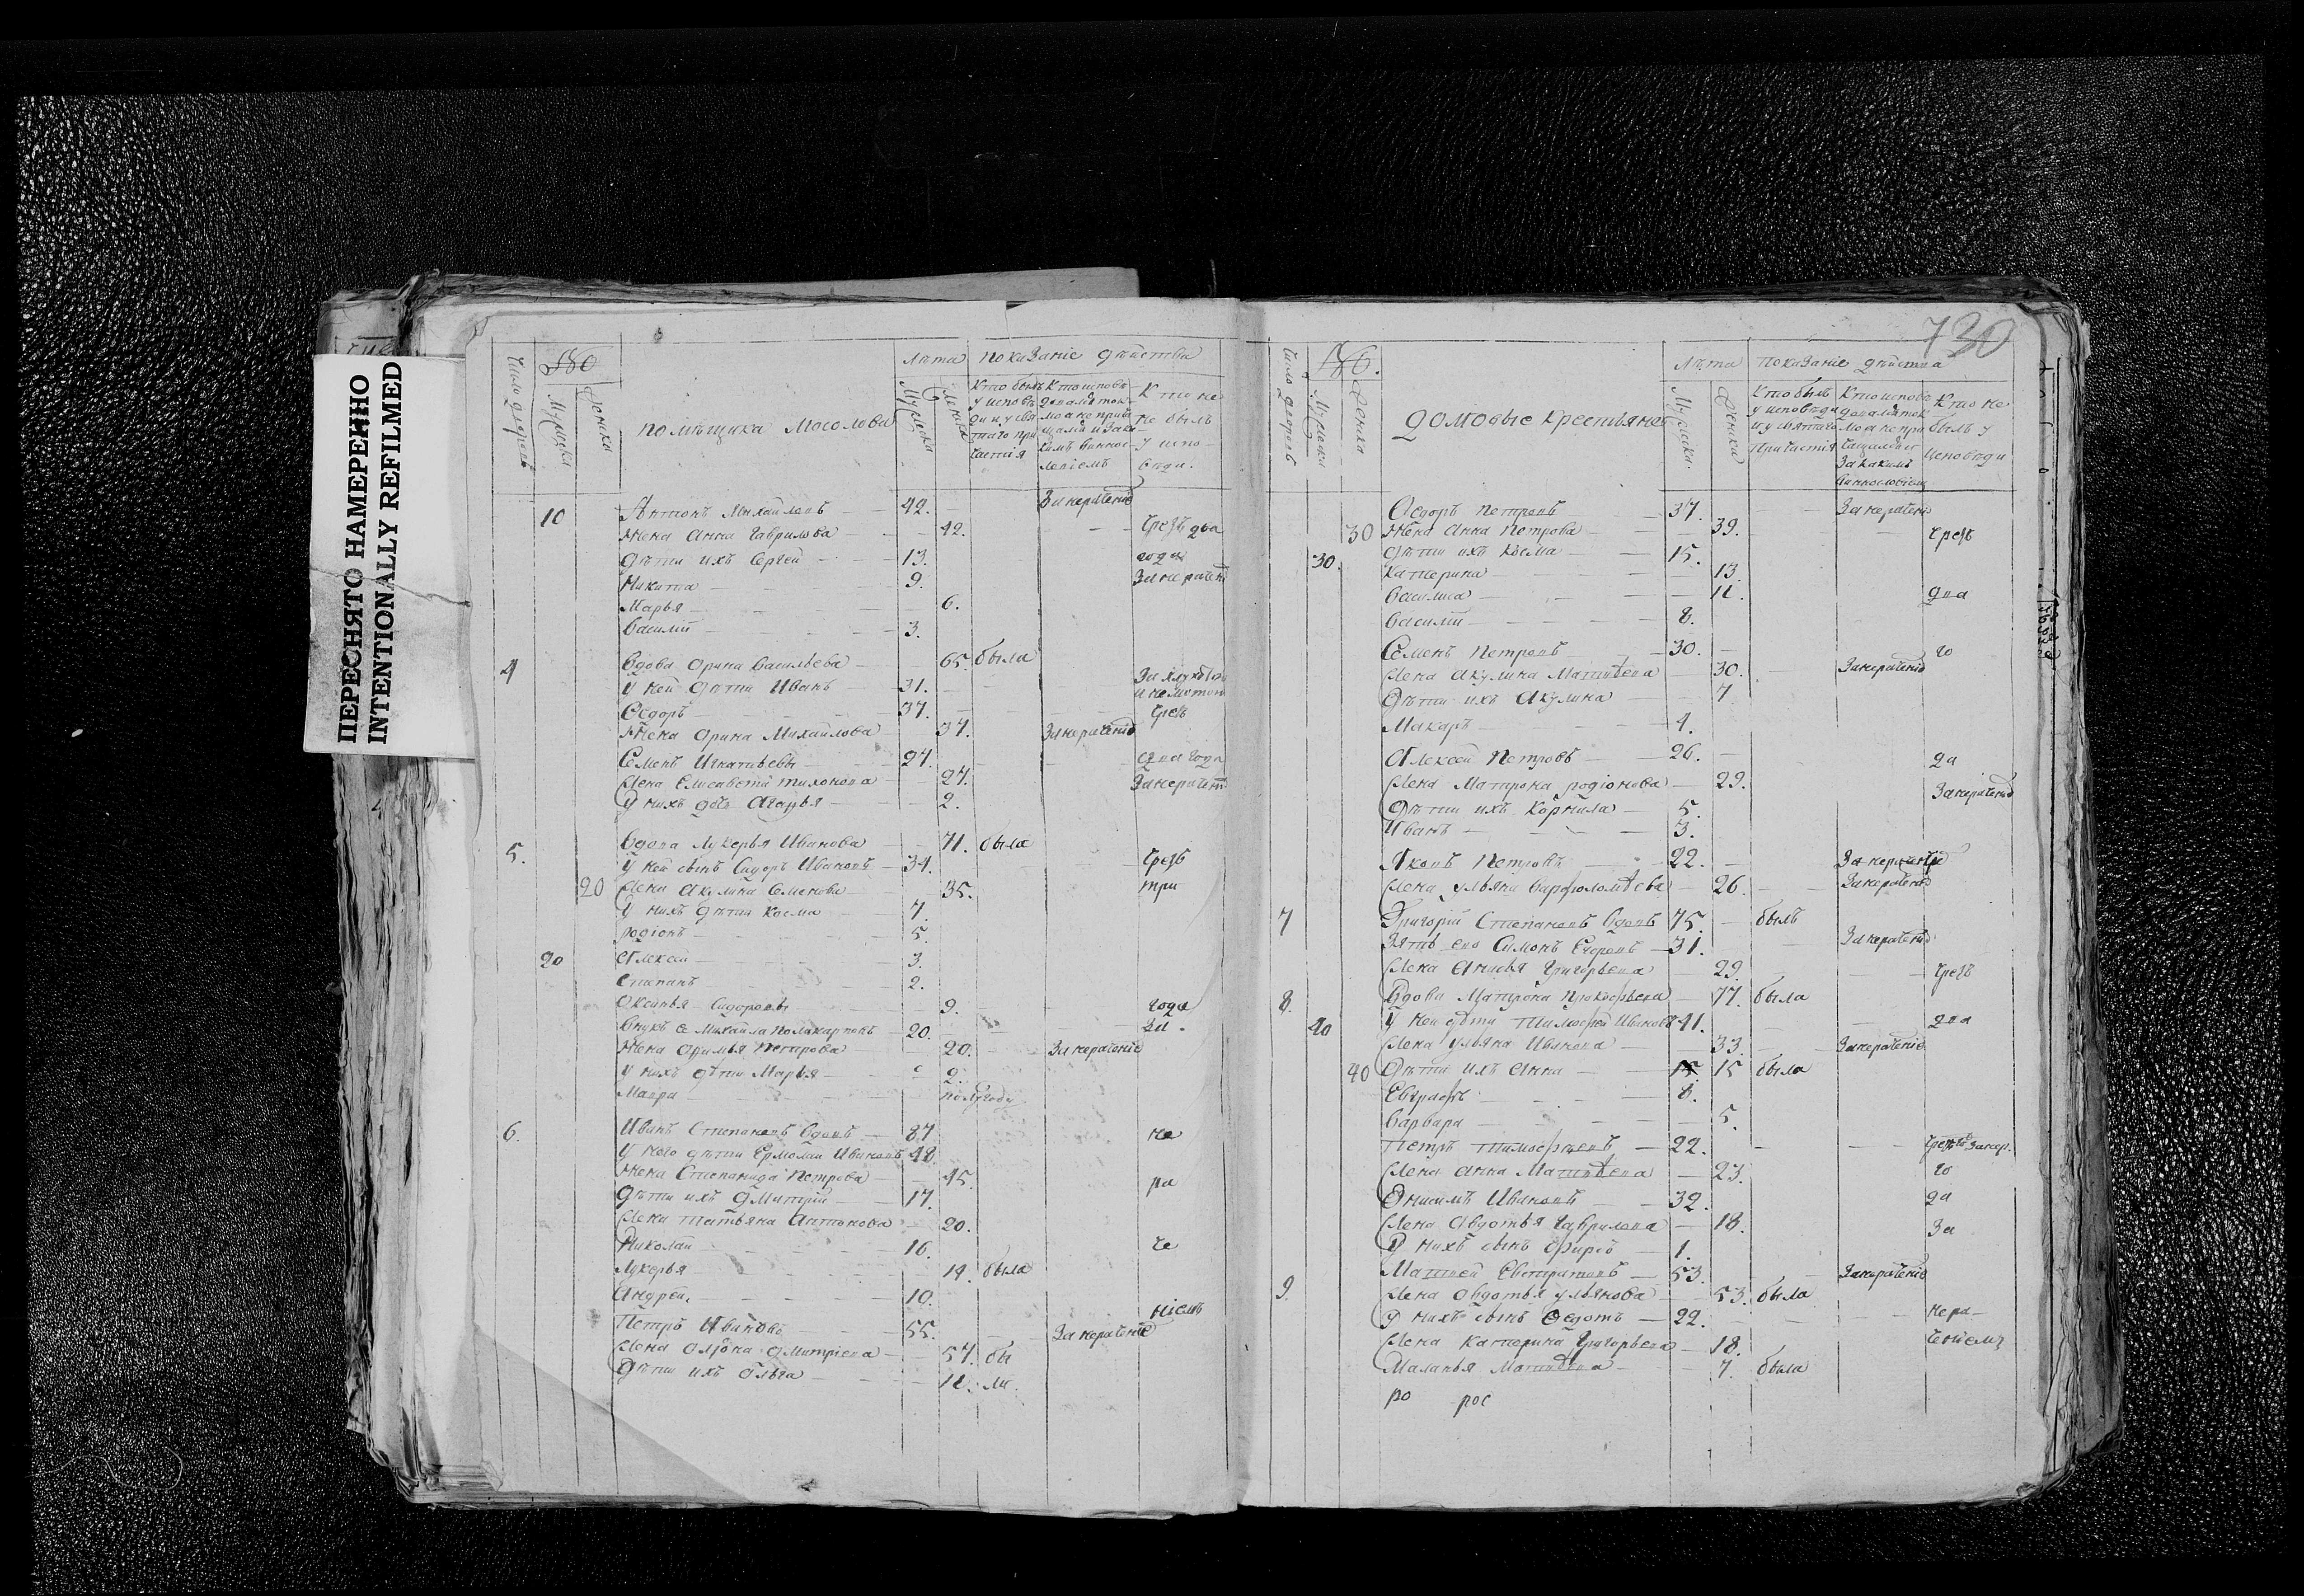 ПЕРЕСНЯТО НАМЕРЕННО
INTENTIONALLY REFILMED
Число дворовъ
Мужеска
Женска
помѣщика Мосолова
Лѣта
Мужеска
Женска
показаніе дѣйства
Кто былъ у исповѣди и у святаго причастія
Кто исповѣдовался токмо а не причащался и за какимъ винословіемъ
Кто не былъ у исповѣди.
10 Антонъ Михайловъ 42. Занераченіе
Жена Анна Гаврилова 42. чрезъ два
Дѣти ихъ Сергей 13. года
Никита 9. Занерачен
Марья 6.
Василій 3.
4 Вдова Орина Васильева 65. была
У ней дѣти Иванъ 31.
Ѳедоръ 37. чрезъ
Жена Орина Михайлова 37. Занераченіе
Семенъ Игнатьевъ 27. два года
Жена Елисавета Тихонова 27. Занерачен
У нихъ дочь Агафья 2.
5. Вдова Лукерья Иванова 71. была
У ней сынъ Сидоръ Ивановъ 34. чрезъ
20 Жена Акулина Семенова 35. три
У нихъ дѣти Косма 7.
Родіонъ 5.
20 Алексей 3.
Степанъ 2.
Оксинья Сидорова 9. года
Внукъ е Михайла Поликарповъ 20. За
Жена Офимья Петрова 20. Занераченіе
У нихъ дѣти Марья 2.
Мавра полугоду
6. Иванъ Степановъ Вдовъ 87 не
У него дѣти Ермолай Ивановъ 48
Жена Степанида Петрова 45. ра
Дѣти ихъ Дмитрій 17.
Жена Татьяна Антонова 20.
Николай 16. че
Лукерья 14. была
Андрей. 10. ніемъ
Петръ Ивановъ 55. Занераченіе
Жена Алѳена Дмитріева 57. бы
Дѣти ихъ Ольга 12. ли.
730
Число дворовъ
Мужеска
Женска
Домовые крестьяне
Лѣта
Мужеска.
Женска
показаніе дѣйства
Кто былъ у исповѣди и у святаго Причастія
Кто исповѣдовался токмо а не причащался и за какимъ винословіемъ
Кто не былъ у исповѣди
Ѳедоръ Петровъ 37. Занерачен
30 Жена Анна Петрова 39. чрезъ
30. Дѣти ихъ Косма 15.
Катерина 13.
Василиса 12. два
Василій 8.
Семенъ Петровъ 30. го
Жена Акулина Матвѣева 30. Занераченіе
Дѣти ихъ Акулина 7
Макаръ 4.
Алексей Петровъ 26. да
Жена Матрона Родіонова 29. Занераченіе
Дѣти ихъ Корнила 5.
Иванъ 3.
Яковъ Петровъ 22. Занераченіе
Жена Ульяна Варѳоломѣева 26. Занераченіе
7 Григорій Степановъ Вдовъ 75. былъ
Зять ево Симонъ Егоровъ 31. Занераченіе
Жена Анисья Григорьева 29. чрезъ
8. Вдова Матрона Прокофьева 77. была
40 У ней дѣти Тимофей Ивановъ 41. два
Жена Ульяна Иванова 33. Занераченіе
40 Дѣти ихъ Анна 15. 15 была
Евграфъ 8.
Варвара 5.
Петръ Тимофеевъ 22.
Жена Анна Матвѣева 23. го
Онисимъ Ивановъ 32. да
Жена Авдотья Гаврилова 18. За
У нихъ сынъ Фирсъ 1.
Матвей Евстратовъ 53. Занераченіе
9. Жена Овдотья Ульянова 53. была
У нихъ сынъ Ѳедотъ 22. нера-
Жена Катерина Григорьева 18. ченіемъ
Маланья Матвѣева 7. была
ро рос